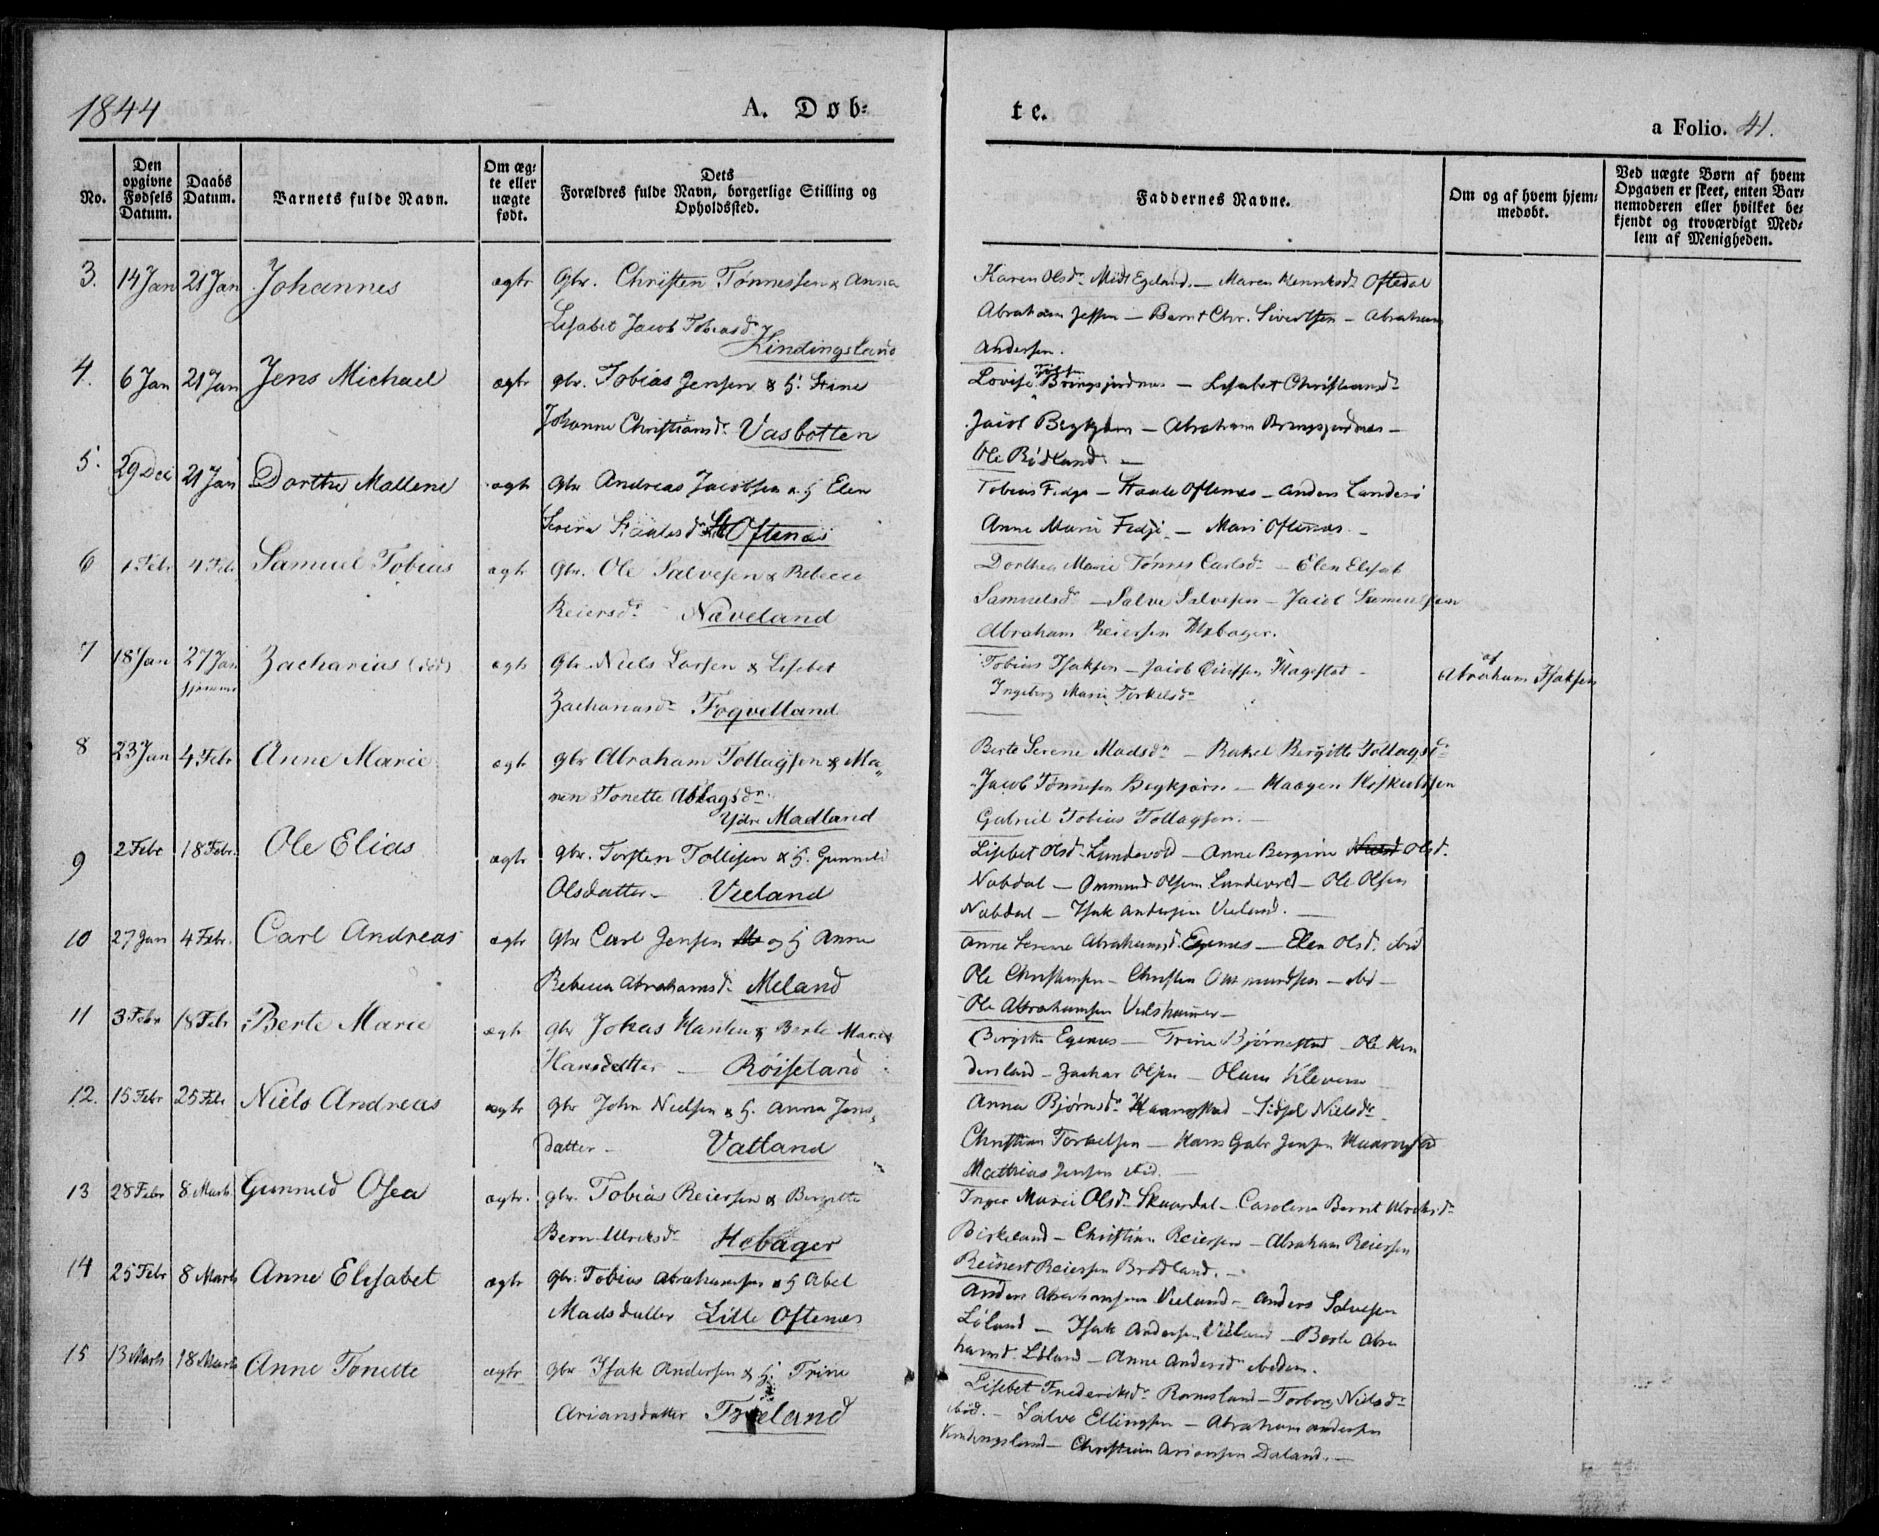 1844
A. Døb=
te.
a Folio. 41.
No.
Den opgivne Fødsels Datum.
Daabs Datum.
Barnets fulde Navn.
Om æg=
te eller
uægte
født.
Dets
Forældres fulde Navn, borgerlige Stilling og
Opholdssted.
Faddernes Navne.
Om og af hvem hjem=
medøbt.
Ved uægte Børn af hvem
Opgaven er skeet, enten Bar=
nemoderen eller hvilket be=
kjendt og troværdigt Med=
lem af Menigheden.
3. 14 Jan 21 Jan Johannes ægte Gbr. Christen Tønnessen & Anna
Lisabet Jacob Tobiasdr
Kindingsland
Karen Olsdr Midt Egeland. – Maren Henriksdr Oftedal
Abraham Jessen – Bernt Chr. Sivertsen – Abraham
Andersen.
4. 6 Jan 21 Jan Jens Michael ægte gbr. Tobias Jensen & H. Stine
Johanne Christiansdr Vasbotten
Lovise Bringsjordnes – Lisabet Christiansdr
Jacob Begkjern – Abraham Bringsjordnes –
Ole Rødland. –
5. 29 Dec 21 Jan Dorthe Mallene ægte gbr Andreas Jacobsen & H Elen
Serina Staalesdr Oftenæs
Tobias Fedge – Staale Oftenes – Anders Landerø
Anne Marie Fedje – Mari Oftenæs. –
6 1 Febr 4 Febr Samuel Tobias ægte Gbr. Ole Salvesen & Rebecca
Reiersdr Næveland
Dorthea Marie Tønnes Carlsdr – Elen Elisab
Samuelsdr – Salve Salvesen – Jacob Samuelsen
Abraham Reiersen Hobager.
7 18 Jan 27 Jan hjemme Zacharias (død) ægte Gbr. Niels Larsen & Lisebet
Zachariasdr Foqvelland
Tobias Isaksen – Jacob Hagestad –
Ingeborg Marie Torkelsdr
af
Abraham Isaksen
8 23 Jan 4 Febr Anne Marie ægte gbr Abraham Tollagsen & Ma=
ren Tonette Aslagsdr
Ydre Madland
Berte Serene Madsdr – Rakel Bergitte Tollagsdr
Jacob Tønnesen Begkjern – Haagen
Gabriel Tobias Tollagsen. –
9 2 Febr 18 Febr. Ole Elias ægte gbr. Torsten Tollisen & H. Gunneld
Olsdatter – Vieland
Lisebet Olsdr Lundevold – Anne Bergine Olsdr
Nabdal – Ommund Olsen Lundevold – Ole Olsen
Nabdal – Isak Andersen Vieland. –
10 27 Jan 4 Febr. Carl Andreas ægte gbr Carl Jensen og H Anne
Rebecca Abrahamsdr Meland
Anne Serene Abrahamsd. Egenes – Elen Olsdr. ibid
Ole Christensen – Christen Ommundsen – ibid –
Ole Abrahamsen Vedshammer –
11 3 Febr 18 Febr Berte Marie ægte gbr Johas Hansen & Berte Marie
Hansdatter – Røiseland
Birgitte Egenes – Trine Bjørnestad – Ole Hin
dersland – Zachar Olsen – Olaus Kleven
12. 15 Febr 25 Febr Niels Andreas ægte gbr John Nielsen & H. Anna Jens=
datter – Vatland
Anna Bjørnsdr Haangstad – Sidsel Nielsdr
Christian Torkelsen – Hans Gabr Jensen Haanegstad
Mathias Jensen ibid. –
13 28 Febr 8 Marts Gunneld Osea ægte. gbr. Tobias Reiersen & Bergitte
Bern Ulriksdr Hobager
Inger Marie Olsdr Skaardal – Carolina Bernt Ulriksdr
Birkeland – Christian Reiersen – Abraham Reiersen
Reinert Reiersen Brodland. –
14 25 Febr 8 Marts Anne Elisabet ægte gbr. Tobias Abrahamsen & H Abel
Madsdatter Lille Oftenæs
Anders Abrahamsen Vieland – Anders Salvesen
Løland – Isak Andersen Vieland – Berte Abra
hamsd. Løland – Anne Andersdr ibidem.
15 13 Marts 18 Marts Anne Tonette ægte gbr Isak Andersen & H. Trine
Ariansdatter Treland
Lisebet Frederiksdr Romsland – Torborg Nielsdr
ibid. – Salve Ellingsen – Abraham Andersen
Kindingsland – Christian Ariansen Daland. –